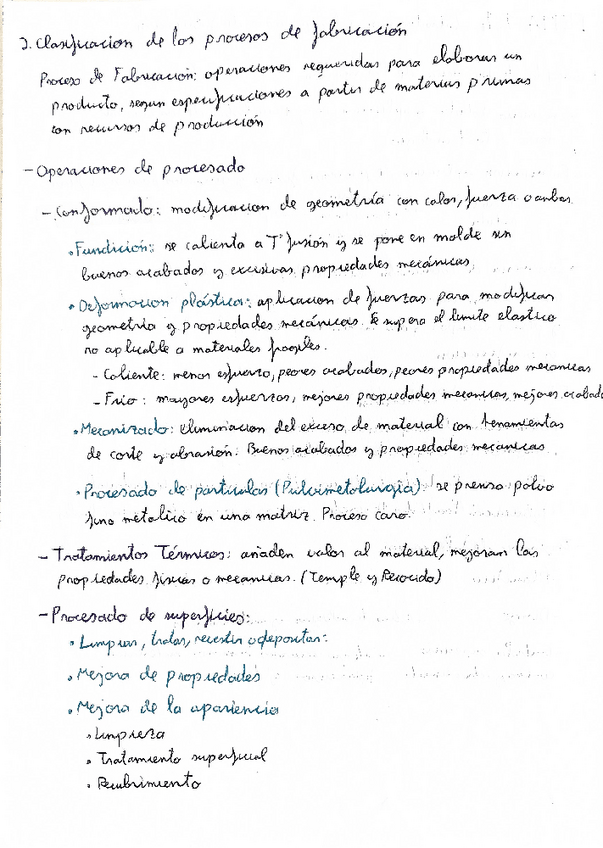 2. Clasificacion de los procesos de fabricación
Proceso de Fabricación: operaciones requeridas para elaborar un
producto, segun especificaciones a partir de materias primas
con recursos de producción
- Operaciones de procesado
- Conformado: modificacion de geometría con calor, fuerza o ambas
• Fundición: se calienta a Tª fusión y se pone en molde sin
buenos acabados y excesivas propiedades mecánicas
• Deformacion plástica: aplicacion de fuerzas para modificar
geometría y propiedades mecánicas. Se supera el limite elastico
no aplicable a materiales fragiles.
- Caliente: menos esfuerzo, peores acabados, peores propiedades mecanicas
- Frio: mayores esfuerzos, mejores propiedades mecanicas, mejores acabado
• Mecanizado: eliminacion del exceso de material con herramientas
de corte y abrasión. Buenos acabados y propiedades mecanicas
• Procesado de particulas (Pulvimetalurgia) se prensa polvo
fino metalico en una matriz. Proceso caro.
- Tratamientos Térmicos: añaden valor al material, mejoran las
propiedades fisicas o mecanicas. (Temple y Recocido)
- Procesado de superficies:
• Limpiar, tratar, recestir o depositar:
• Mejora de propiedades
• Mejora de la apariencia
• Limpieza
• Tratamiento superficial
• Recubrimiento